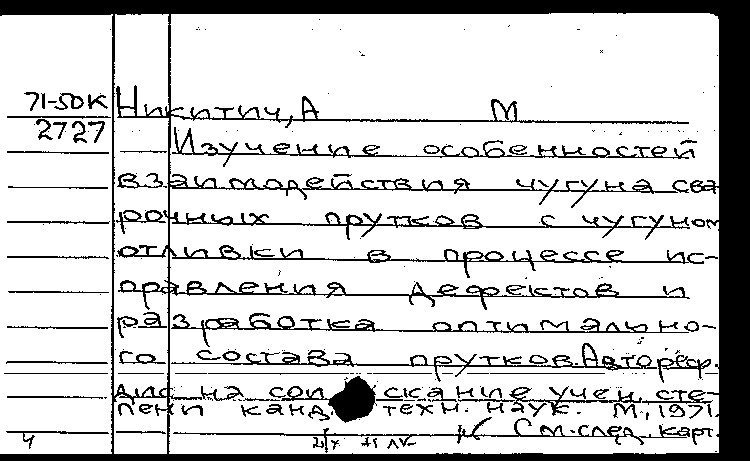 71-50К Никитич, А М
2727 Изучение особенностей
взаимодействия чугуна сва
рочных прутков с чугуном
отливки в процессе ис-
правления дефектов и
разработка оптимально-
го состава прутков. Автореф.
дис на сои скание учен. сте-
пени канд. техн. наук. М., 1971.
См. след. карт.
4